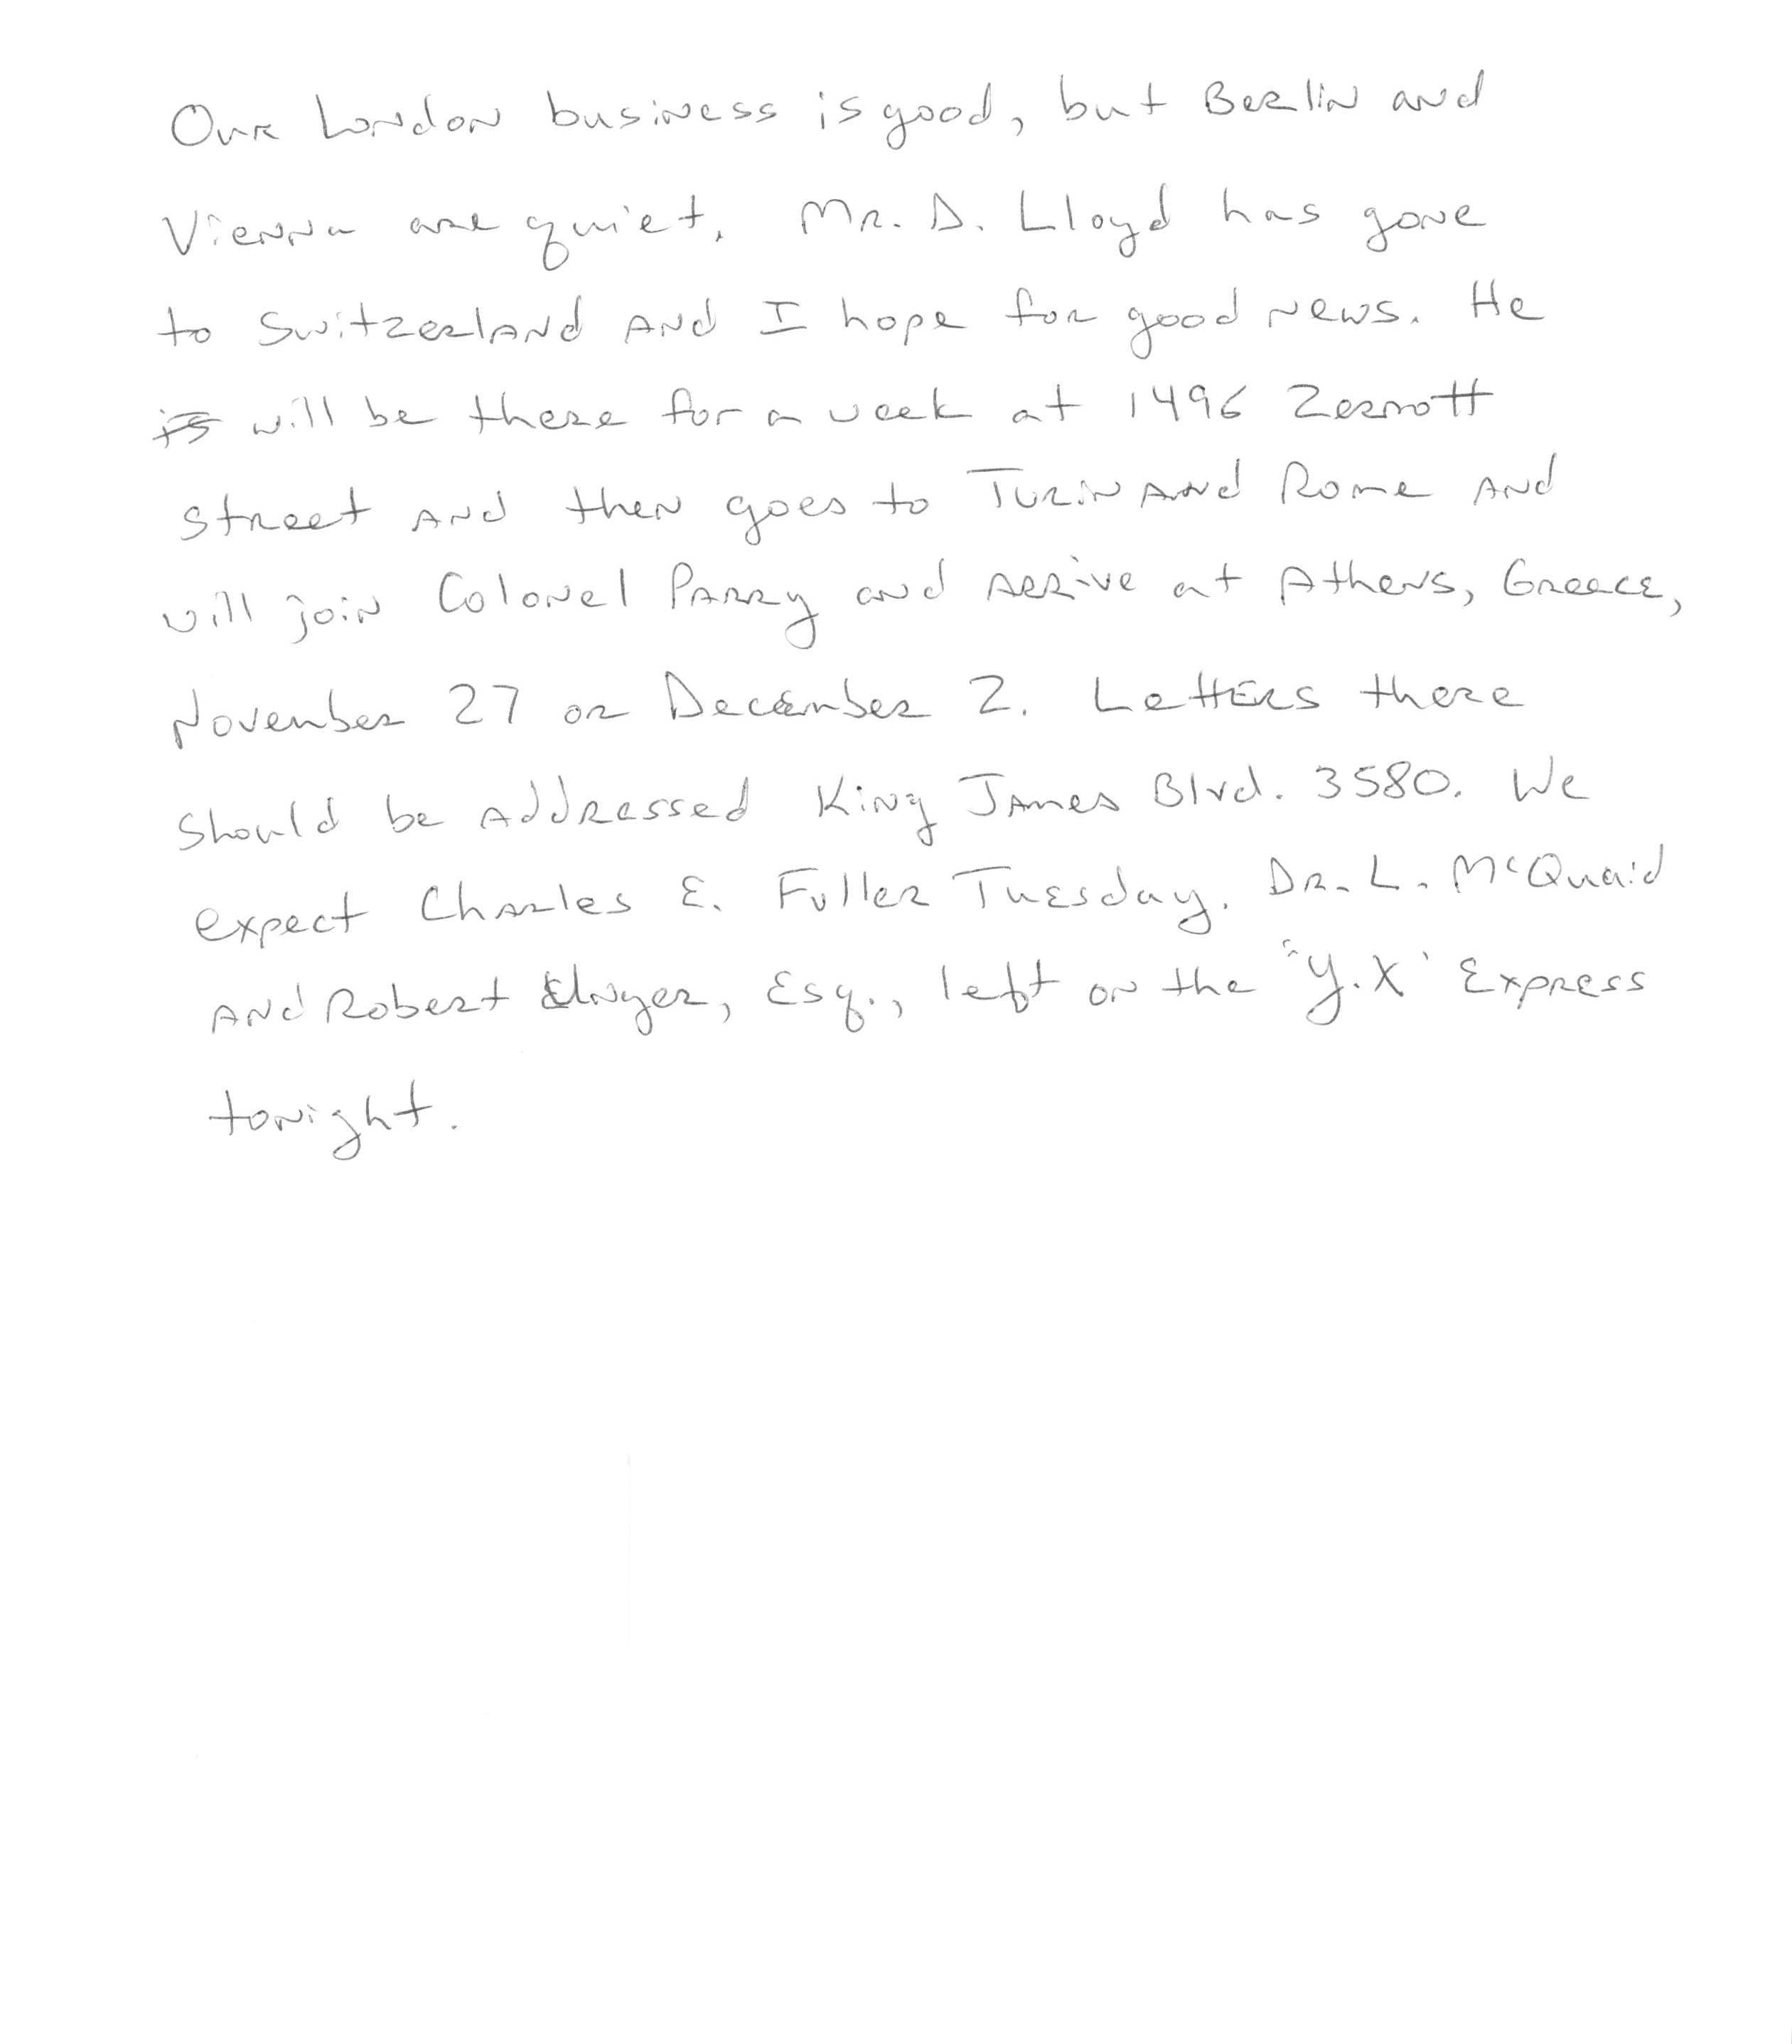 Our London business is good, but Berlin and
Vienna are quiet. Mr. D. Lloyd has gone
to Switzerland and I hope for good news. He
is will be there for a week at 1496 Zermott
street and then goes to Turin and Rome and
will join Colonel Parry and arrive at Athens, Greece,
November 27 or December 2. Letters there
should be addressed King James Blvd. 3580. We
expect Charles E. Fuller Tuesday. Dr. L. McQuaid
and Robert Unger, Esq., left on the "Y.X' Express
tonight.